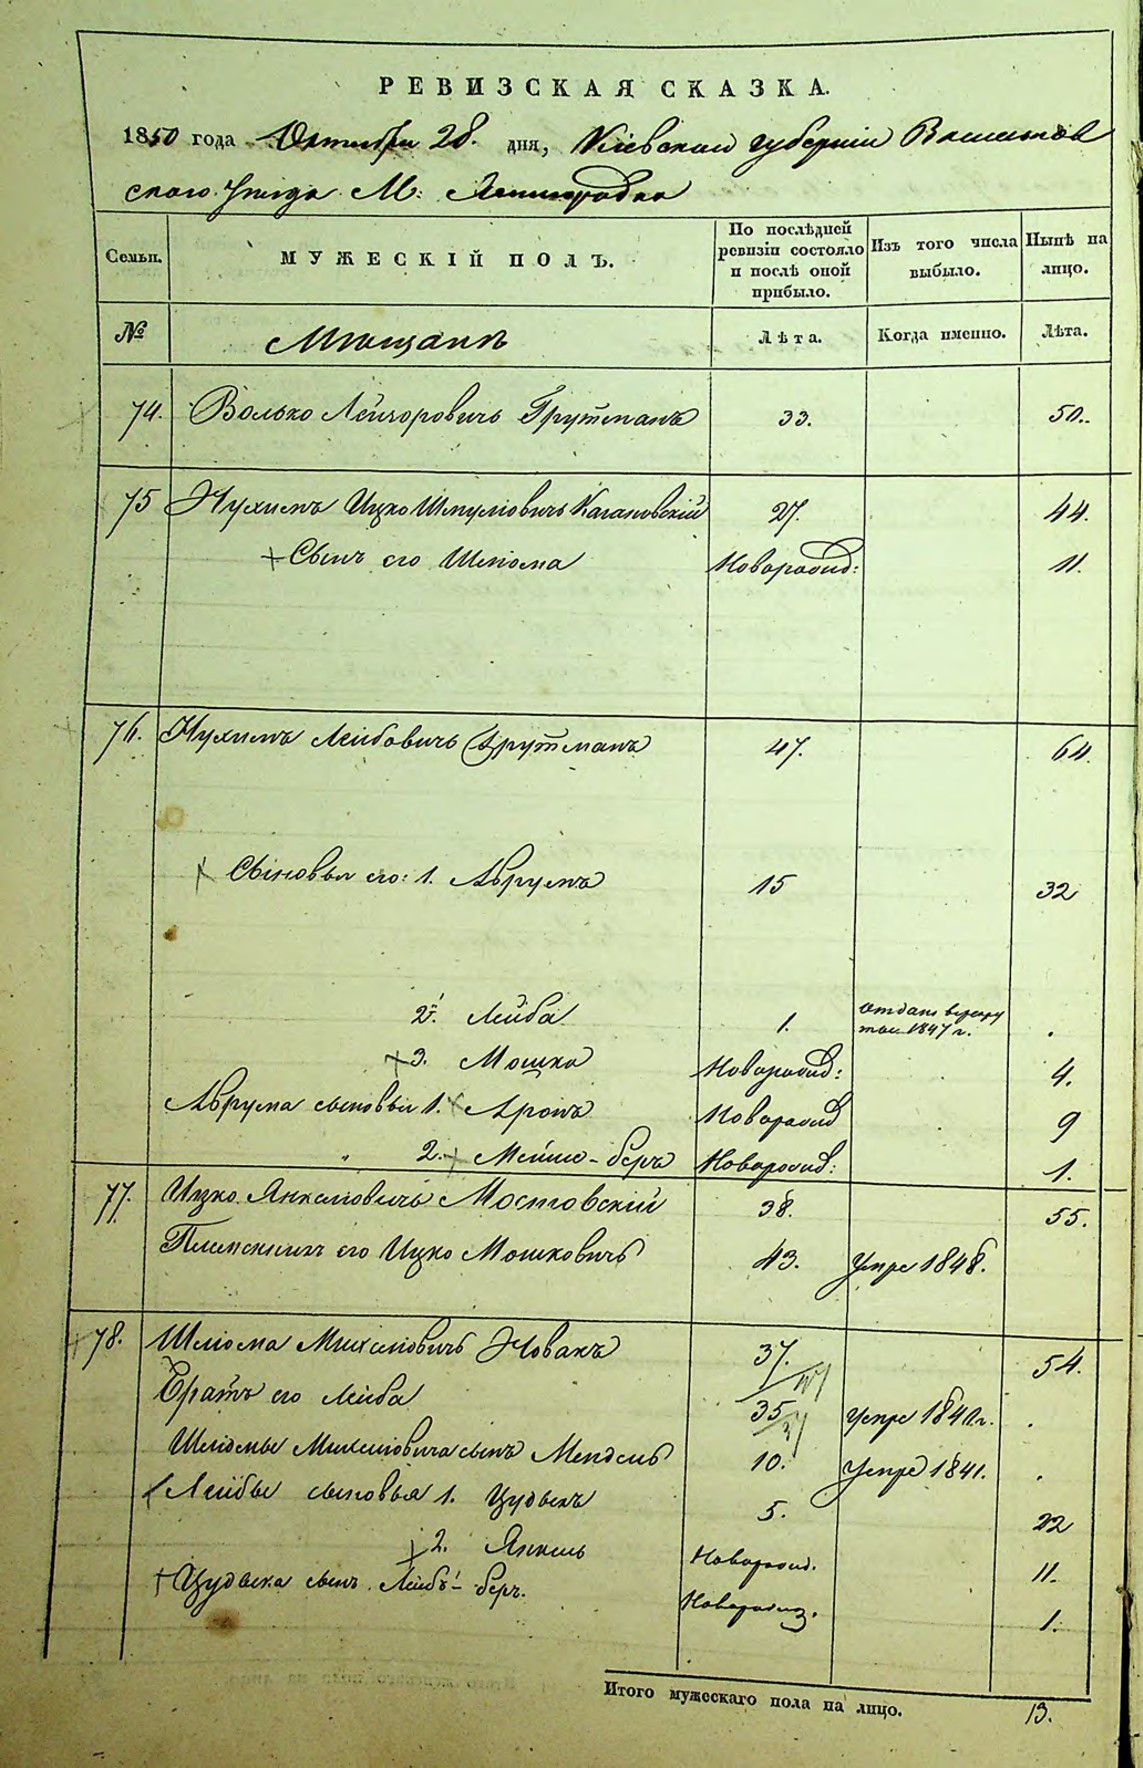 РЕВИЗСКАЯ СКАЗКА.
1850 года Октября 28. дня, Кіевской губерніи Васильков
скаго Уѣзда М:
Семьи. МУЖЕСКІЙ ПОЛЪ. По послѣдней ревизіи состояло и послѣ оной прибыло. Изъ того числа выбыло. Нынѣ на лицо.
№ Мѣщане Лѣта. Когда именно. Лѣта.
74. Волько Лейзоровичъ Грутманъ 33. 50.
75 Нухимъ Ицко Шмуліовичъ Кагановскій 27. 44.
Сынъ его Шліома Новорожд: 11.
76. Нухимъ Лейбовичъ Грутманъ 47. 64.
Сыновья его: 1. Аврумъ 15 32
2й. Лейба 1. отданъ врекру
ты 1847 г.
3. Мошко Новорожд: 4.
Аврума сыновья 1. Аронъ Новорожд 9
2. Мейше-беръ Новорожд: 1.
77. Ицко Янкеліовичъ Мостовскій 38. 55.
Племянникъ его Ицко Мошковичъ 43. Умре 1848.
78. Шліома Михеліовичъ Новакъ 37. 54.
Братъ его Лейба 35 умре 184 г.
Шліомы Михеліовича сынъ Мендель 10. Умре 1841.
Лейбы сыновья 1. Цудыкъ 5. 22
2. Янкель Новорожд. 11.
Цудыка сынъ Лейбъ-беръ. Новорожд. 1.
Итого мужескаго пола на лицо. 13.